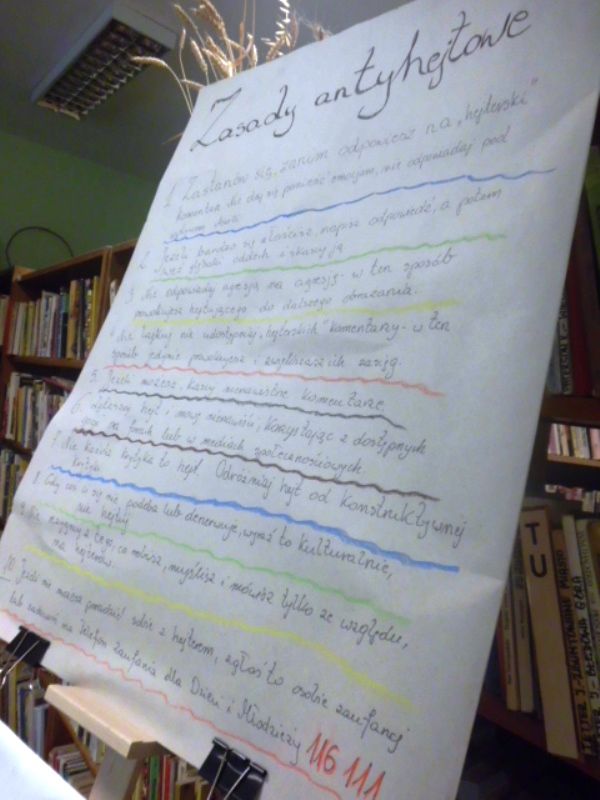 Zasady antyhejtowe
1. Zastanów się, zanim odpowiesz na „hejterski"
komentarz. Nie daj się ponieść emocjom, nie odpowiadaj pod
wpływem
2. Jeżeli bardzo się złościsz, napisz odpowiedź, a potem
weź głęboki oddech i skasuj ją
3. Nie odpowiadaj agresją na agresję - w ten sposób
prowokujesz hejtującego do dalszego obrażania.
4. Nie lajkuj nie udostępniaj „hejterskich" komentarzy - w ten
sposób jedynie prowokujesz i zwiększasz ich zasięg.
5. Jeżeli możesz, kasuj nienawistne komentarze
6. Zgłaszaj hejt i mowę nienawiści, korzystając z dostępnych
na forach lub w mediach społecznościowych.
7. Nie każda krytyka to hejt. Odróżniaj hejt od konstruktywnej
krytyki
8. Gdy coś ci się nie podoba lub denerwuje, wyraź to kulturalnie,
nie hejtuj
9. Nie rezygnuj z tego, co robisz, myślisz i mówisz tylko ze względu,
na hejterów.
10. Jeżeli nie możesz poradzić sobie z hejterem, zgłoś to osobie zaufanej
lub zadzwoń na Telefon Zaufania dla Dzieci i Młodzieży 116 111
TU